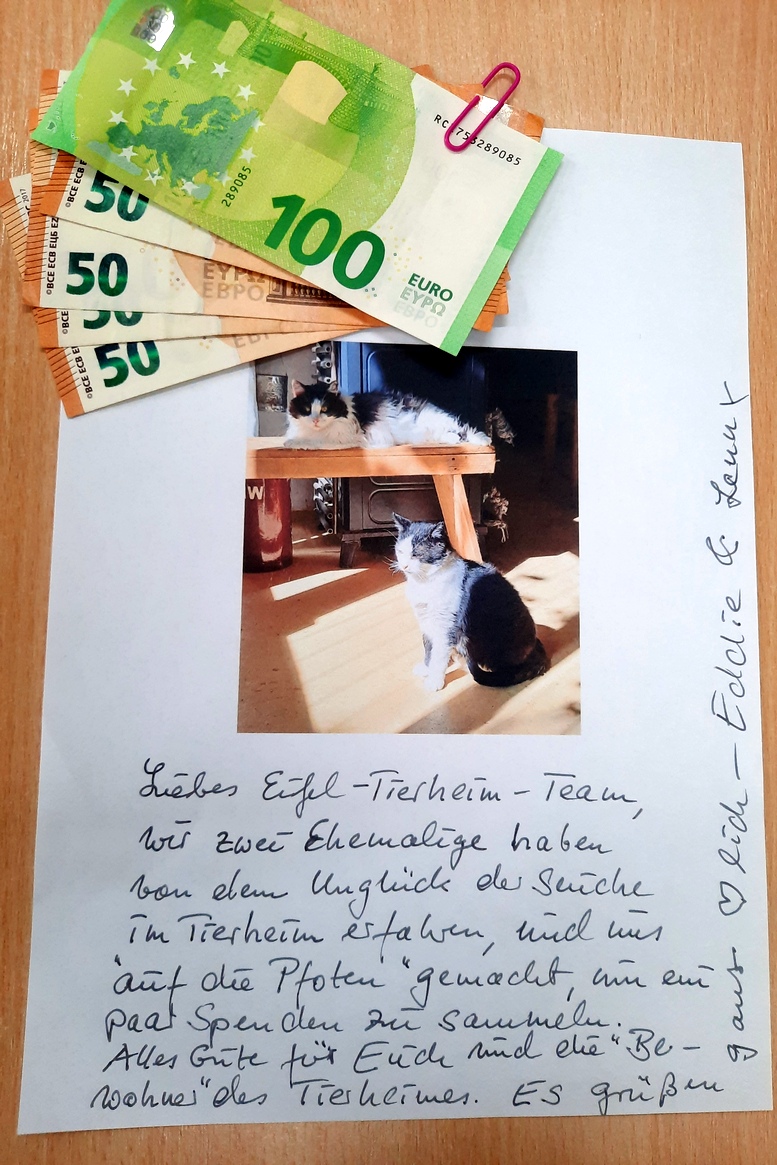 RC
753289085
289085
100
EURO
ΕΥΡΩ
ЕВРО
50
©BCE ECB ЕЦБ EZ
50
ΕΥΡΩ
ЕВРО
50
50
©BCE ECB E
2017
W
Liebes Eifel-Tierheim-Team,
wir zwei Ehemalige haben
von dem Unglück der Seuche
im Tierheim erfahren, und uns
"auf die Pfoten" gemacht, um ein
paar Spenden zu sammeln.
Alles Gute für Euch und die "Be-
wohner" des Tierheimes. Es grüßen
ganz ♡lich - Eddie & Lenny